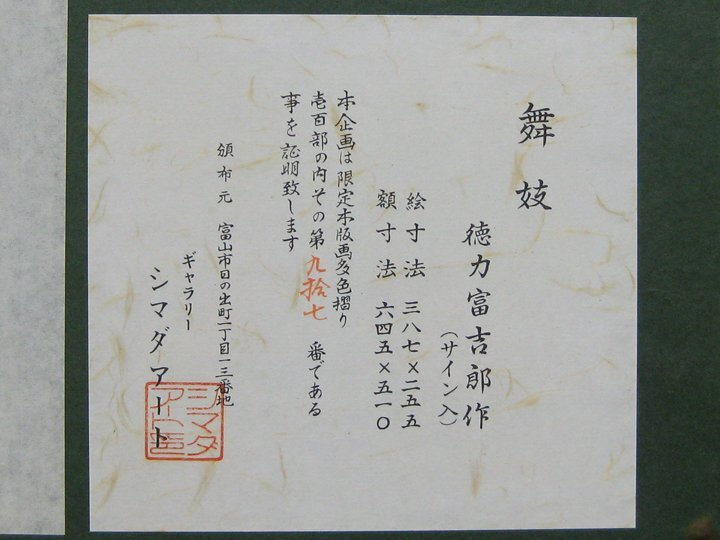 舞妓
徳力富吉郎作
(サイン入)
絵寸法 三八七×二五五
額寸法 六四五×五一〇
本企画は限定木版画多色摺り
壱百部の内その第九拾七番である
事を証明致します
頒布元 富山市日の出町一丁目一三番地
ギャラリー
シマダアート
シマダ
アート